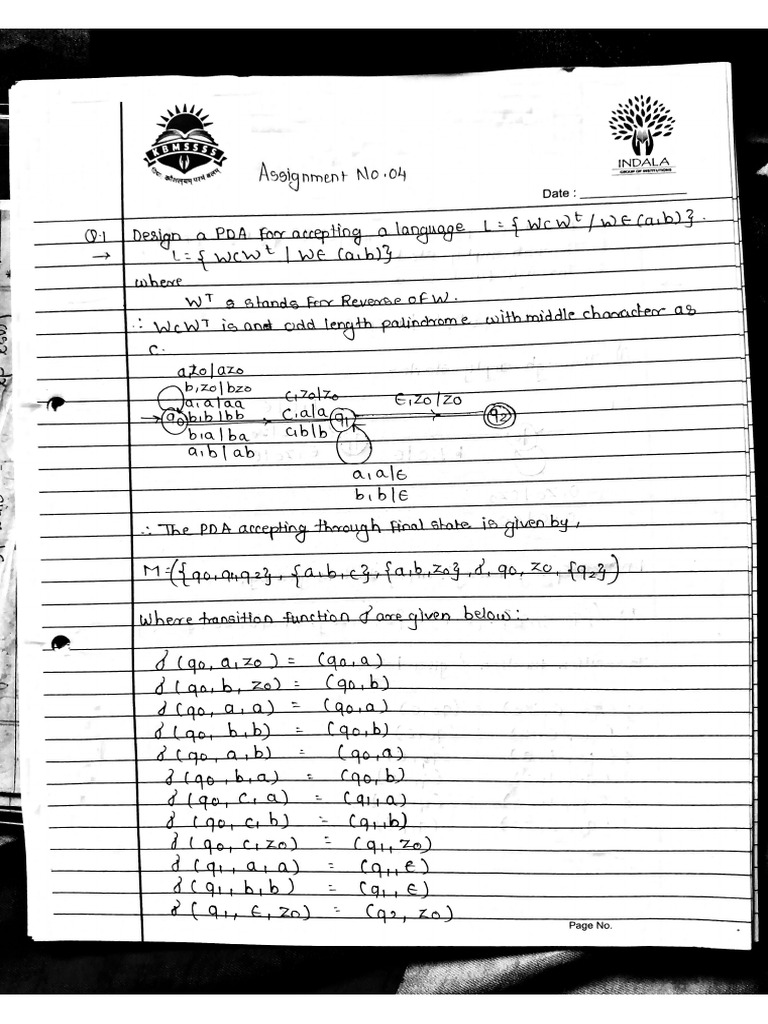 KBMSSSS
INDALA
GROUP OF INSTITUTIONS
Assignment No.04
Date :
Q.1 Design a PDA for accepting a language L = { WcWᵗ / WE (a,b)}.
→ L = { WcWᵗ | WE (a,b)}
where
Wᵀ s stands for Reverse of W.
∴ WcWᵀ is and odd length palindrome with middle character as
c.
a,z0/az0
b,z0/bz0
a,a/aa
b,b/bb
b,a/ba
a,b/ab
c,z0/z0
c,a/a
c,b/b
q1
ε,z0/z0
q2
a,a/ε
b,b/ε
∴ The PDA accepting through final state is given by,
M = ({q0,q1,q2}, {a,b,c}, {a,b,z0}, δ, q0, z0, {q2})
Where transition function δ are given below:
δ (q0, a, z0) = (q0, a)
δ (q0, b, z0) = (q0, b)
δ (q0, a, a) = (q0, a)
δ (q0, b, b) = (q0, b)
δ (q0, a, b) = (q0, a)
δ (q0, b, a) = (q0, b)
δ (q0, c, a) = (q1, a)
δ (q0, c, b) = (q1, b)
δ (q0, c, z0) = (q1, z0)
δ (q1, a, a) = (q1, ε)
δ (q1, b, b) = (q1, ε)
δ (q1, ε, z0) = (q2, z0)
Page No.